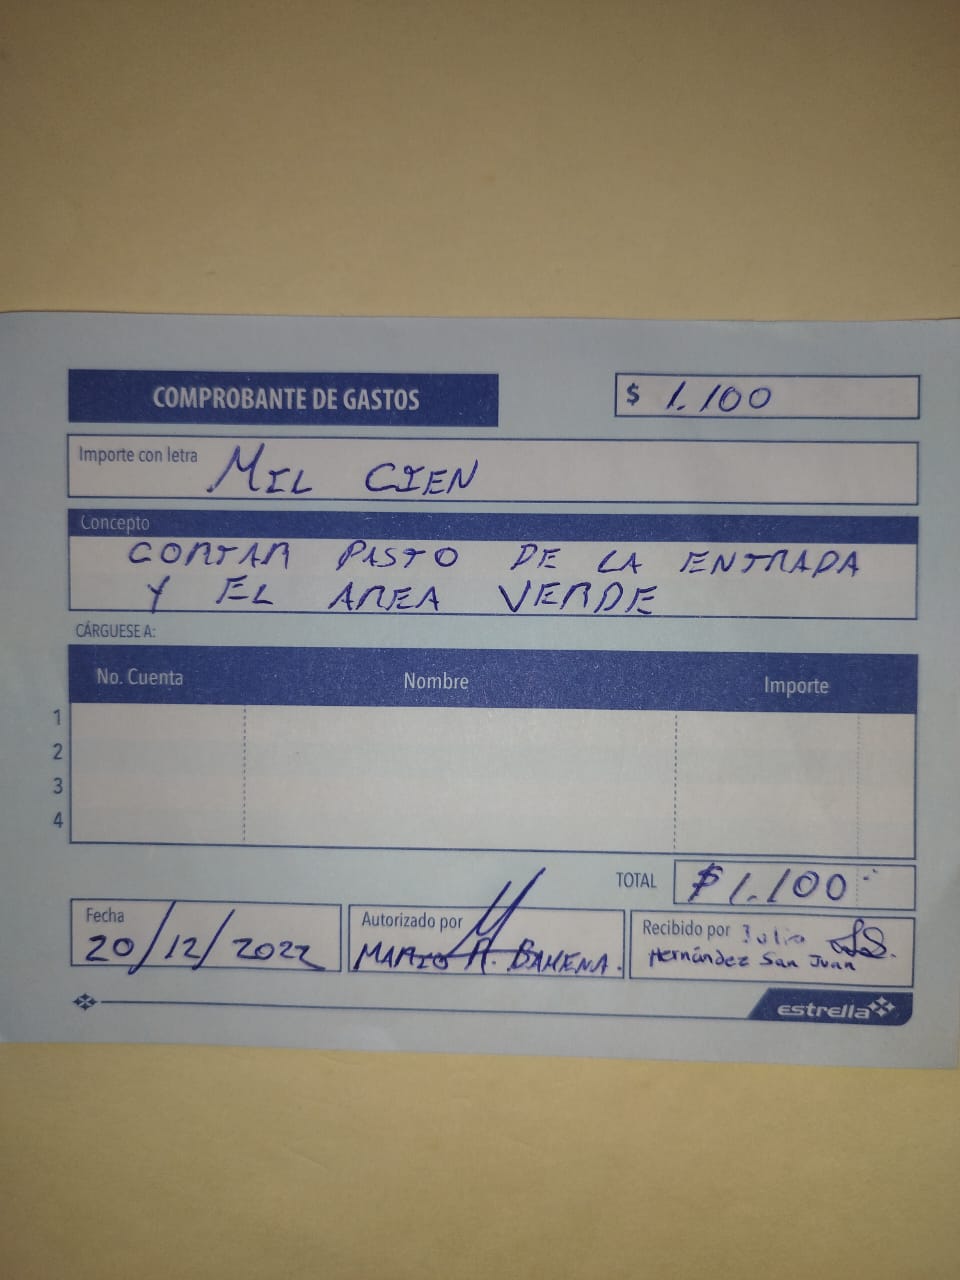 COMPROBANTE DE GASTOS
$ 1.100
Importe con letra MIL CIEN
Concepto
CORTAR PASTO DE LA ENTRADA
Y EL AREA VERDE
CÁRGUESE A:
No. Cuenta Nombre Importe
1
2
3
4
TOTAL $1.100
Fecha 20/12/2022
Autorizado por
MARIO A. BAHENA.
Recibido por Julio
Hernández San Juan
estrella